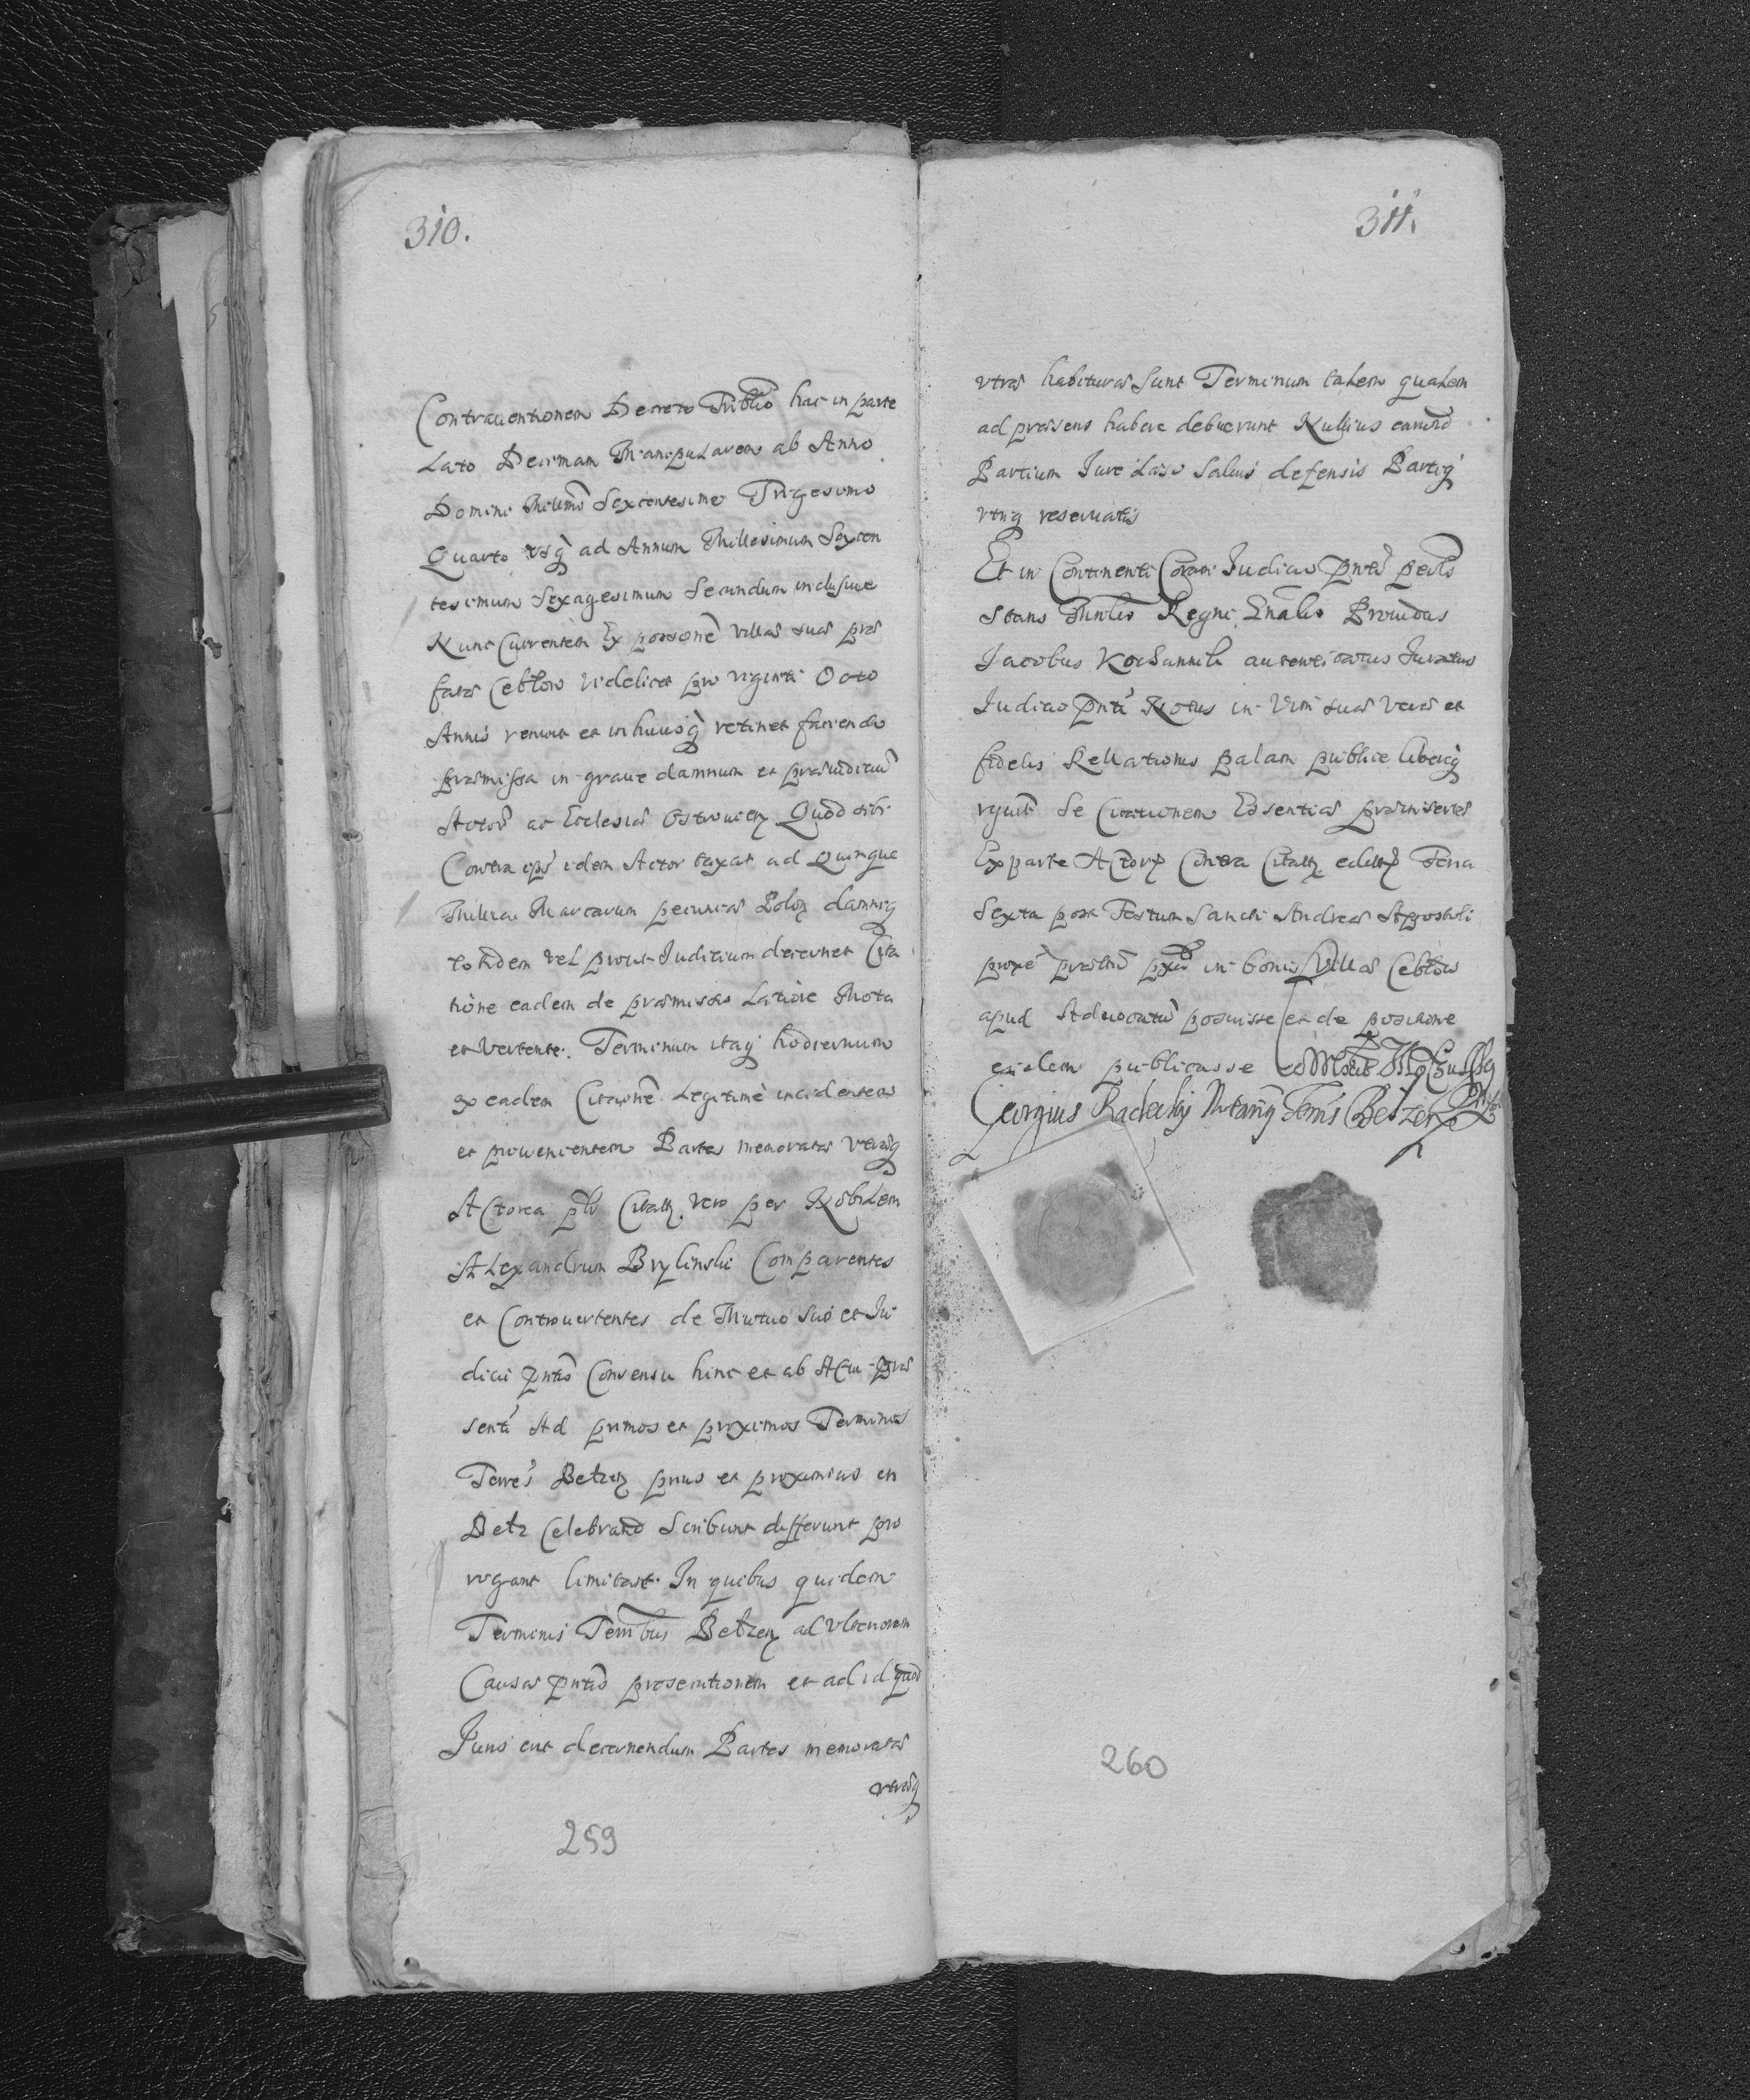 310.
Contrauentionem Decreto Triblio hac in parte
Lato Decimam Manipularem ab Anno
Domini Millmo Sexcentesimo Trigesimo
Quarto usq ad Annum Millesimum Sexcen
tesimum Sexagesimum Secundum inclusiue
Nunc Currentem Ex portione villæ suæ præ
fatæ Ceblow videlicet pro viginti Octo
Annis renuit et in huiusq retinet faciendo
præmissa in graue damnum et præiudicium
Actoris ac Ecclesiæ Ostrouien Quod sibi
Contra ipsum idem Actor taxat ad Quinque
Millia Marcarum pecuniæ Polon damniq
totidem vel prout Judicium decernet Cita
tione eadem de præmissis Latiore Mota
et Vertente. Terminum itaq hodiernum
ex eadem Citatione Legitimè incidentem
et prouenientem Partes memoratæ
Actorea Citata vero per Nobilem
Alexandrum Brylinski Comparentes
et Controuertentes de Mutuo suo et Ju
dicii pntis Consensu hinc et ab Actu præ
senti Ad primos et proximos Terminos
Terres Belzen prius et proximius in
Belz Celebrand Scribunt differunt pro
rogant limitant. In quibus quidem
Terminis Terribus Belzen ad Vlteriorem
Causæ pntis prosecutionem et ad id quod
Juris erit decernendum Partes memoratæ
vtræq
259
311.
vtræ habituræ sunt Terminum talem qualem
ad præsens habere debuerunt Nullius earund
Partium Jure Læso Saluis defensis Partiq
vtriq reseruatis
Et in Continenti Coram Judicio pnti
stans Minlis Regni Gnalis Prouidus
Jacobus Kochannik autenticatus Juratus
Judicio pnti Notus in Vim suæ Veræ et
fidelis Rellationis palam publice libereq
se Citationem Essentiæ præinsertæ
Ex parte Actoris Contra Citatum Feria
Sexta post Festum Sancti Andreæ Apostoli
in bonis Villæ Ceblow
apud Aduocatum posuisse et de positione
eiusdem publicasse
Georgius Radecky Notariq Terris Belzen
260